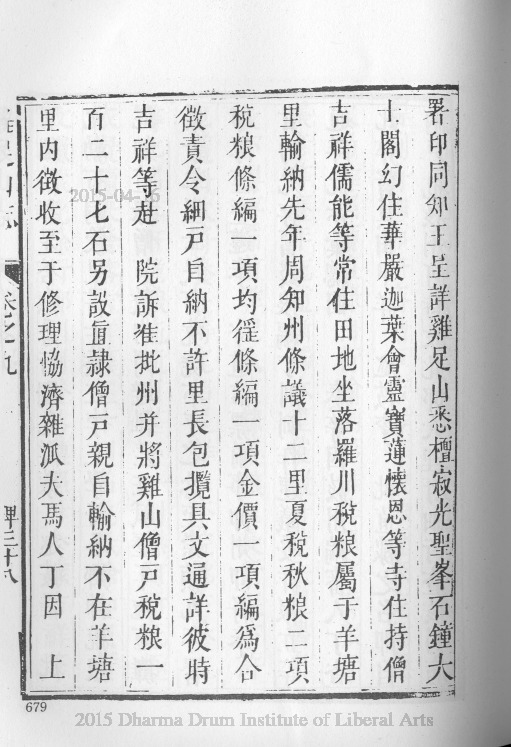 署印同知王呈詳雞足山悉檀寂光聖峯石鐘大
士閣幻住華嚴迦葉會靈寶蓮懷恩等寺住持僧
吉祥儒能等常住田地坐落羅川稅粮屬于羊塘
里輸納先年周知州條議十二里夏稅秋粮二項
稅粮條編一項均徭條編一項金價一項編爲合
徵責令細戸自納不許里長包攬具文通詳彼時
吉祥等赴 院訴准批州并將雞山僧戸稅粮一
百二十七石另設直隷僧戸親自輸納不在羊塘
里內徵收至于修理恊濟雜派夫馬人丁因 上
足山志
卷之九
三十八
679
2015-04-
2015 Dharma Drum Institute of Liberal Arts